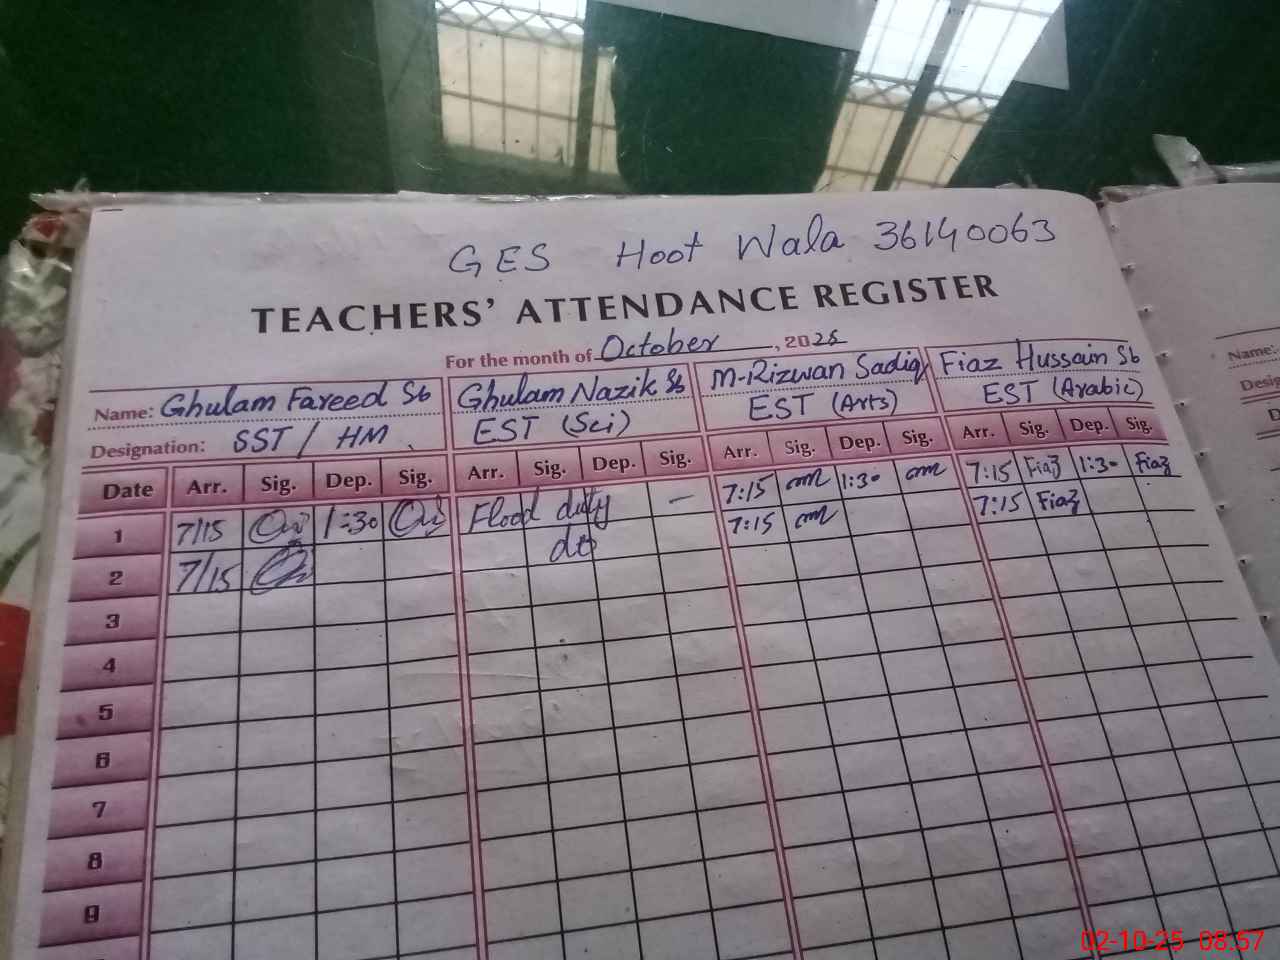 GES Hoot Wala 36140063
TEACHERS' ATTENDANCE REGISTER
For the month of October, 2025
Name: Ghulam Fareed Sb Ghulam Nazik Sb M-Rizwan Sadiq Fiaz Hussain Sb
Designation: SST / HM EST (Sci) EST (Arts) EST (Arabic)
Date Arr. Sig. Dep. Sig. Arr. Sig. Dep. Sig. Arr. Sig. Dep. Sig. Arr. Sig. Dep. Sig.
1 7/15 1:30 Flood duty — 7:15 1:30 7:15 Fiaz 1:30 Fiaz
2 7/15 do 7:15 7:15 Fiaz
3
4
5
6
7
8
9
Name:
Desig
D
02-10-25 08:57